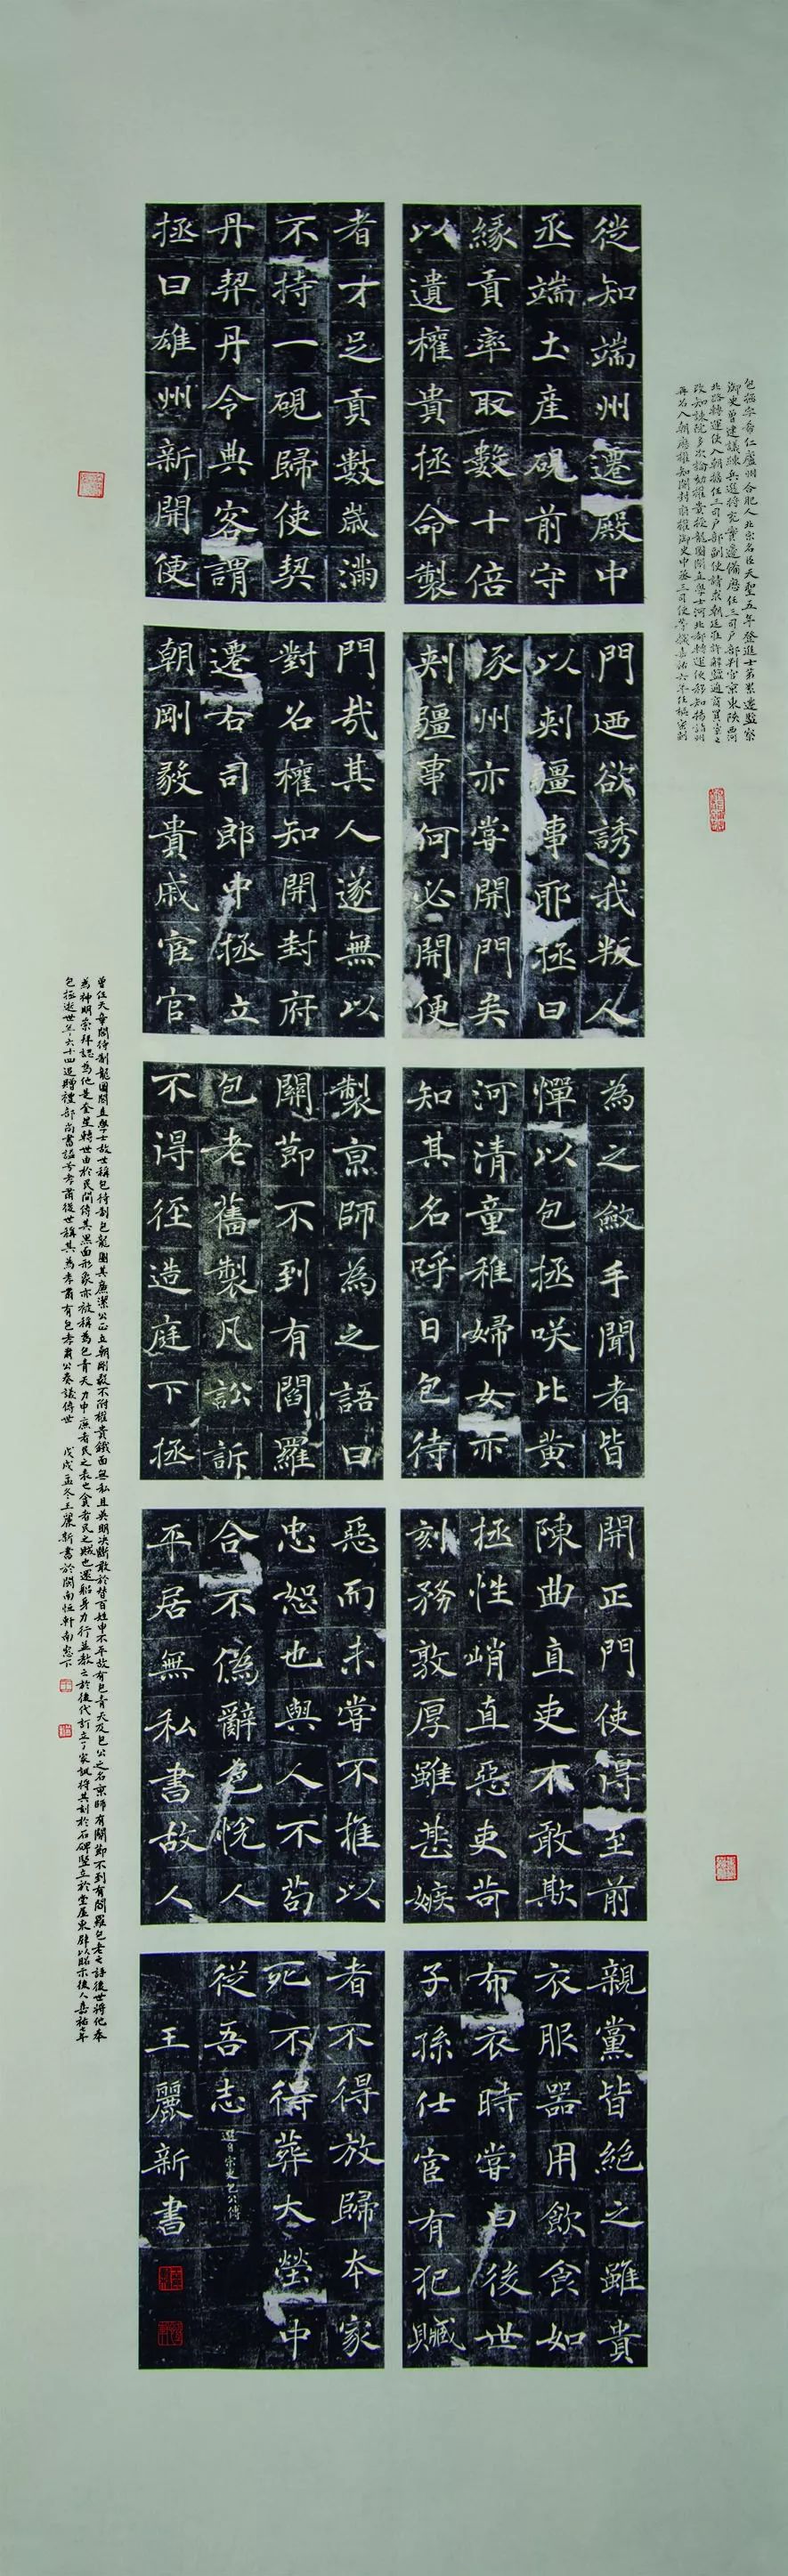 包拯字希仁廬州合肥人北宋名臣天聖五年登進士第累遷監察
御史曾建議練兵選將充實邊備歷任三司戶部判官京東陝西河
北路轉運使入朝擔任三司戶部副使請求朝廷准許解鹽通商買賣之
改知諫院多次論劾權貴授龍圖閣直學士河北都轉運使移知揚諸州
再召入朝歷權知開封府權御史中丞三司使等職嘉祐六年任樞密副
從知端州遷殿中
丞端土產硯前守
緣貢率取數十倍
以遺權貴拯命製
者才足貢數歲滿
不持一硯歸使契
丹契丹令典客謂
拯曰雄州新開便
門迺欲誘我叛人
以刺疆事耶拯曰
涿州亦嘗開門矣
刺疆事何必開便
門哉其人遂無以
對召權知開封府
遷右司郎中拯立
朝剛毅貴戚宦官
為之斂手聞者皆
憚以包拯咲比黃
河清童稚婦女亦
知其名呼曰包待
製京師為之語曰
關節不到有閻羅
包老舊製凡訟訴
不得徑造庭下拯
開正門使得至前
陳曲直吏不敢欺
拯性峭直惡吏苛
刻務敦厚雖甚嫉
惡而未嘗不推以
忠恕也與人不苟
合不偽辭色悅人
平居無私書故人
親黨皆絕之雖貴
衣服器用飲食如
布衣時嘗曰後世
子孫仕宦有犯贓
者不得放歸本家
死不得葬大塋中
從吾志 選自宋史包公傳
王麗新書
曾任天章閣待制龍圖閣直學士故世稱包待制包龍圖其廉潔公正立朝剛毅不附權貴鐵面無私且英明決斷敢於替百姓申不平故有包青天及包公之名京師有關節不到有閻羅包老之語後世將他奉
為神明崇拜認為他是奎星轉世由於民間傳其黑面形象亦被稱為包青天力申廉者民之表也貪者民之賊也還躬身力行並教之於後代訂立了家訓將其刻於石碑豎立於堂屋東壁以昭示後人嘉祐七年
包拯逝世年六十四追贈禮部尚書諡号孝肅後世稱其為孝肅有包孝肅公奏議傳世 戊戌孟冬王麗新書於閩南恒軒南窓下